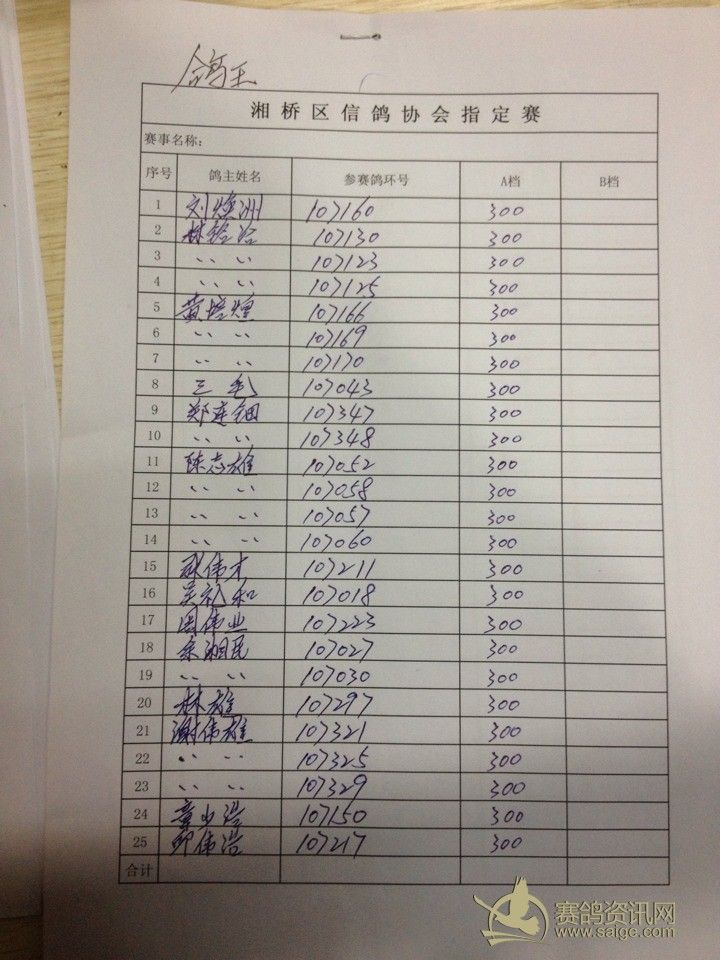 鸽王
湘桥区信鸽协会指定赛
赛事名称:
序号 鸽主姓名 参赛鸽环号 A档 B档
1 刘焕洲 107160 300
2 林铿治 107130 300
3 〃 〃 107123 300
4 〃 〃 107125 300
5 黄培煌 107166 300
6 〃 〃 107169 300
7 〃 〃 107170 300
8 三毛 107043 300
9 郑连钿 107347 300
10 〃 〃 107348 300
11 陈志雄 107052 300
12 〃 〃 107058 300
13 〃 〃 107057 300
14 〃 〃 107060 300
15 伟才 107211 300
16 吴礼和 107018 300
17 伟业 107223 300
18 余湘民 107027 300
19 〃 〃 107030 300
20 林雄 107297 300
21 谢伟雄 107321 300
22 〃 〃 107325 300
23 〃 〃 107329 300
24 章少浩 107150 300
25 伟浩 107217 300
合计
赛鸽资讯网
www.saige.com